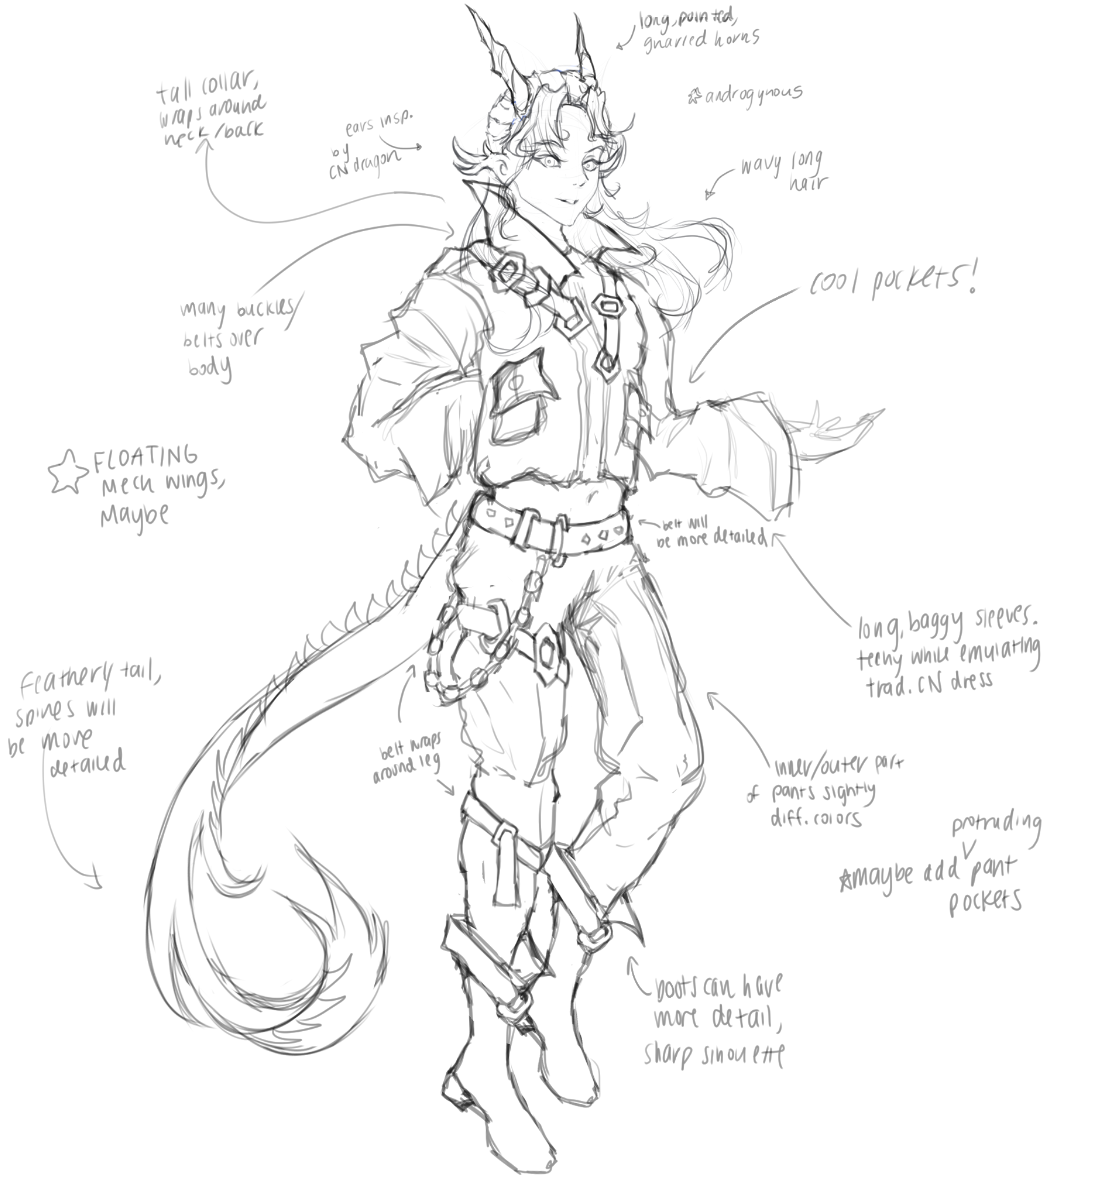 long, pointed,
gnarled horns
☆ androgynous
tall collar,
wraps around
neck/back
ears insp.
by
CN dragon
wavy long
hair
cool pockets!
many buckles/
belts over
body
☆ FLOATING
Mech wings,
Maybe
belt will
be more detailed
long, baggy sleeves.
teeny while emulating
trad. CN dress
feathery tail,
spines will
be more
detailed
belt wraps
around leg
inner/outer part
of pants slightly
diff. colors
protruding
☆maybe add pant
pockets
boots can have
more detail,
sharp silouette